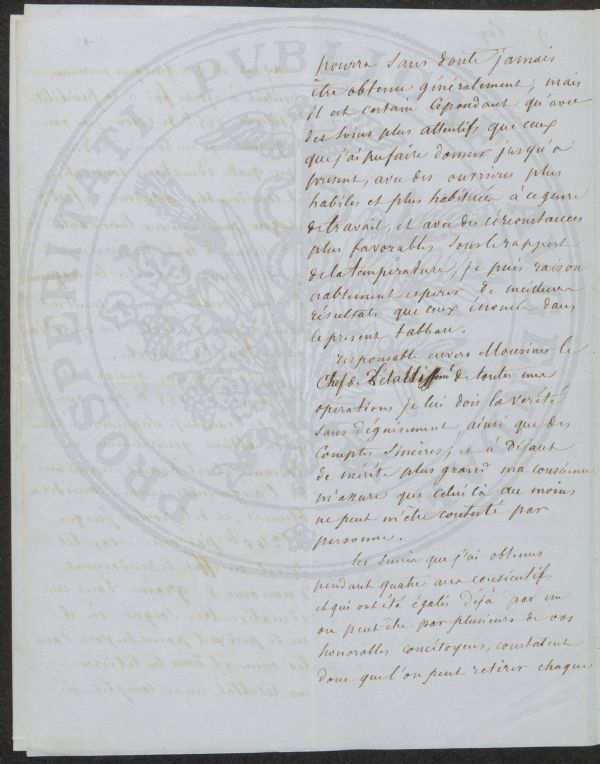 pourra sans doute jamais
être obtenue généralement; mais
il est certain cependant qu'avec
des soins plus attentifs que ceux
que j'ai pu faire donner jusqu'à
présent, avec des ouvrières plus
habiles et plus habituées à ce genre
de travail, et avec des circonstances
plus favorables sous le rapport
de la température, je puis raison
nablement espérer de meilleurs
résultats que ceux énoncés dans
le présent tableau.
responsable envers Monsieur le
Chef de L'établissemt de toutes mes
operations je lui dois la verité
sans déguisement ainsi que des
comptes sincères; et à défaut
de mérite plus grand ma conscience
m'assure que celui là au moins
ne peut m'être contesté par
personne.
les succès que j'ai obtenus
pendant quatre ans consécutifs
et qui ont été égalés déjà par un
ou peut être par plusieurs de vos
honorables concitoyens, constatent
donc que l'on peut retirer chaque
PROSPERITATI PUBLICAE